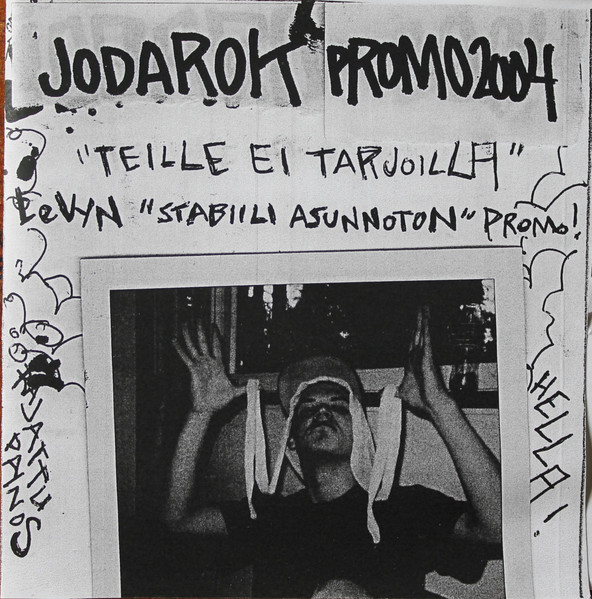 JODAROK PROMO2004
"TEILLE EI TARJOILLA"
EeVYN "STABIILI ASUNNOTON" PROMO!
RAJATTU
PAINOS
HELLA!